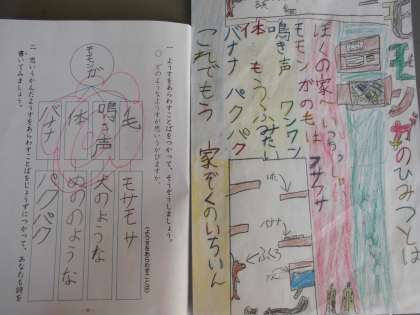 一 ようすをあらわすことばをつかって、そうぞうしましょう。
○ どのようなようすが思いうかびますか。
(ようすをあらわすことば)
モモンが
毛 モサモサ
鳴き声 犬のような
体 ぬののような
バナナ パクパク
二 思いうかんだようすをあらわすことばをじょうずにつかって、あなたも詩を
書いてみましょう。
モモンガのひみつとは
ぼくの家へ
モモンガのもは フサフサ
鳴き声 ワンワン
体 もうふみたい
バナナ パクパク
これでもう 家ぞくのいちいん
ふくろ